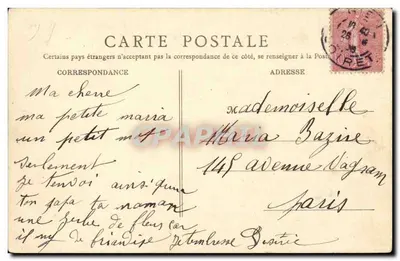 CARTE POSTALE
Certains pays étrangers n'acceptant pas la correspondance de ce côté, se renseigner à la Poste
CORRESPONDANCE
ADRESSE
Ma cherre
ma petite maria
un petit mot
seulement
je tenvoi ainsi que
ton papa ta maman
une gerbe de fleus car
il ny de friandise je tembrasse Desirée
Mademoiselle
Maria Bazire
145 avenue Vagram
Paris
LOIRET
CPAPHIL